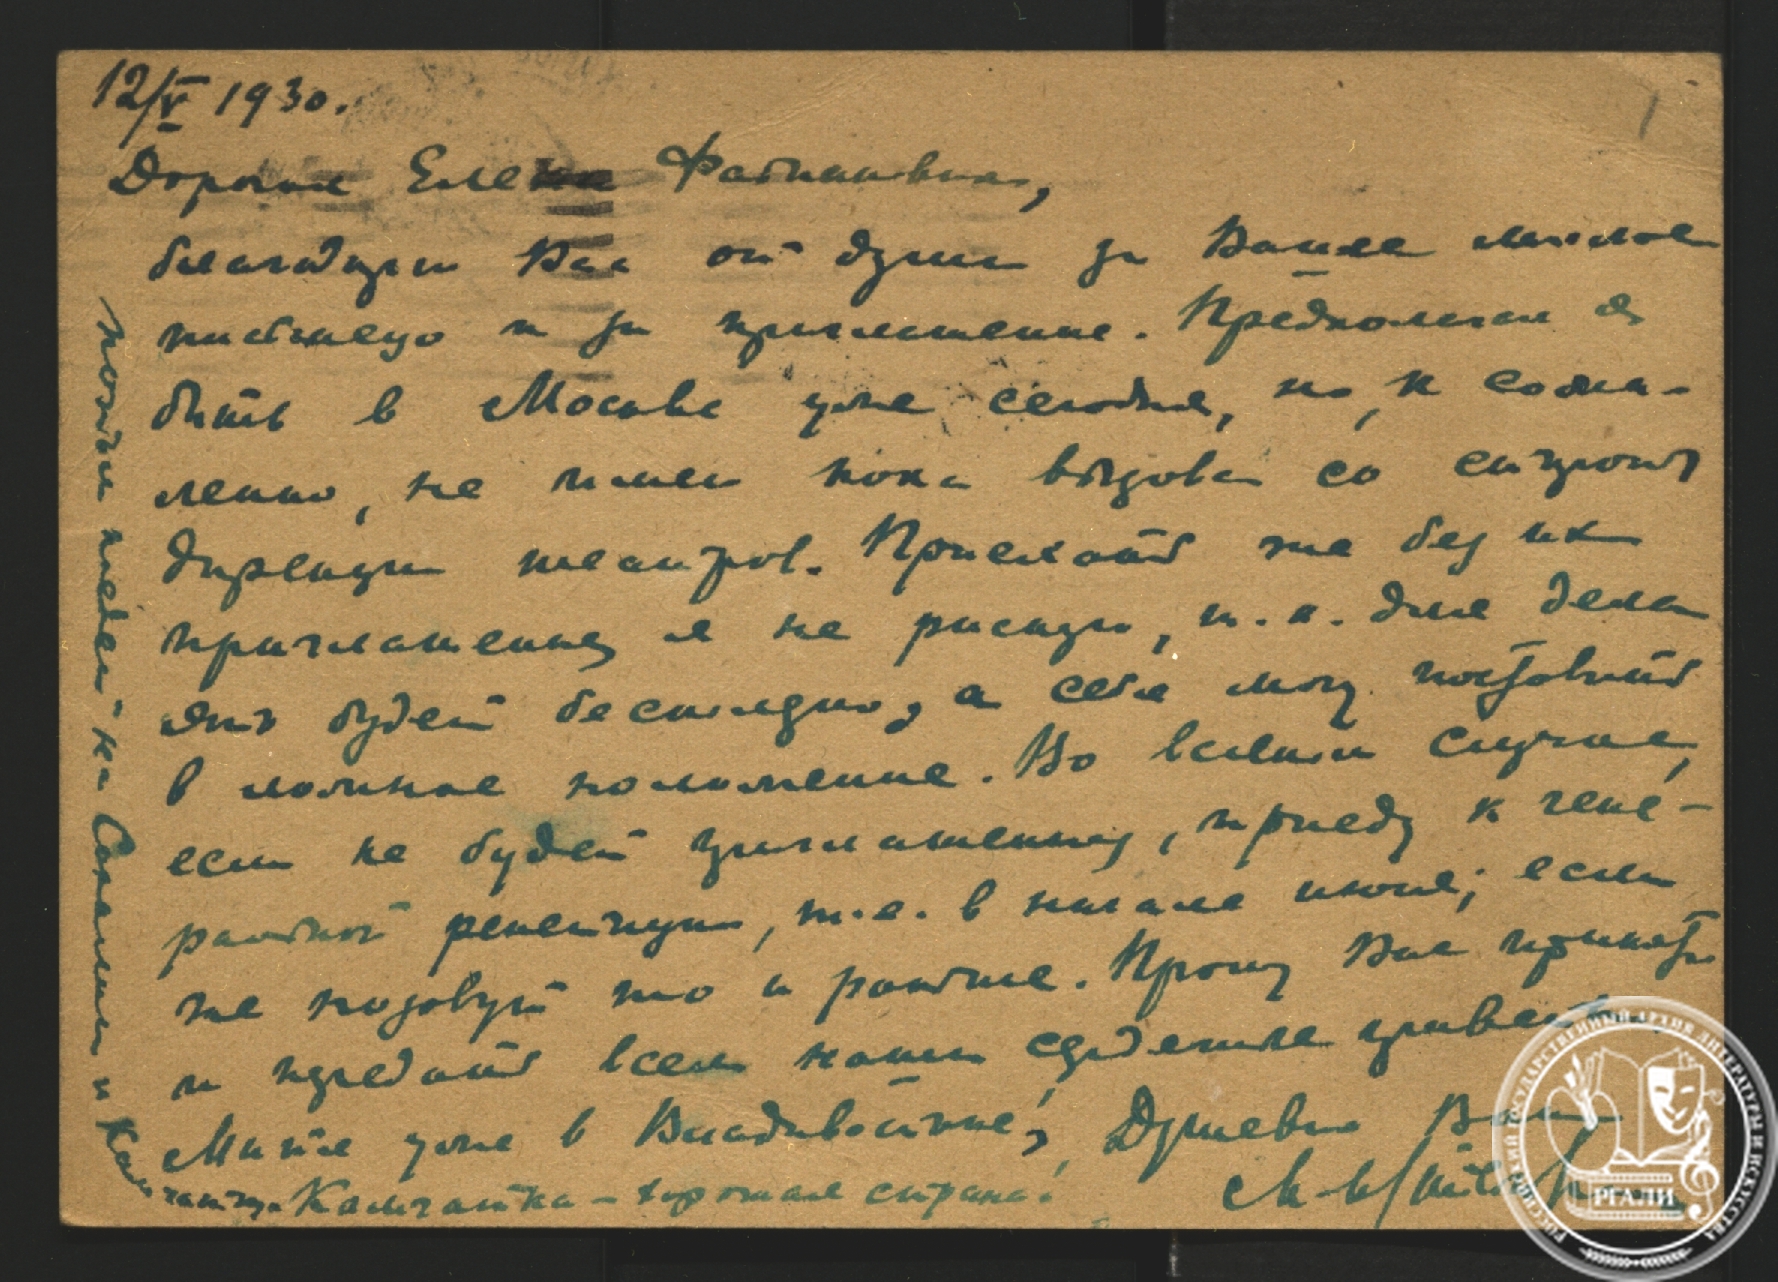 12/V 1930.
Дорогая Елена Фабиановна,
благодарю Вас от души за Ваше милое
письмецо и за приглашение. Предполагал я
быть в Москве уже сегодня, но, к сожа-
лению, не имею пока вызова со стороны
дирекции театров. Приехать же без их
приглашения я не рискую, т.к. для дела
это будет бесполезно, а себя могу поставить
в ложное положение. Во всяком случае,
если не будет приглашения, приеду к гене-
ральной репетиции, т.е. в начале июня; если
же позовут то и раньше. Прошу Вас принять
и передать всем нашим сердечные приветы.
Митя уже в Владивостоке, Душевно Ваш
Камчатка – хорошая страна! М.
поедет на Сахалин и Камчатку.
РОССИЙСКИЙ ГОСУДАРСТВЕННЫЙ АРХИВ ЛИТЕРАТУРЫ И ИСКУССТВА
РГАЛИ